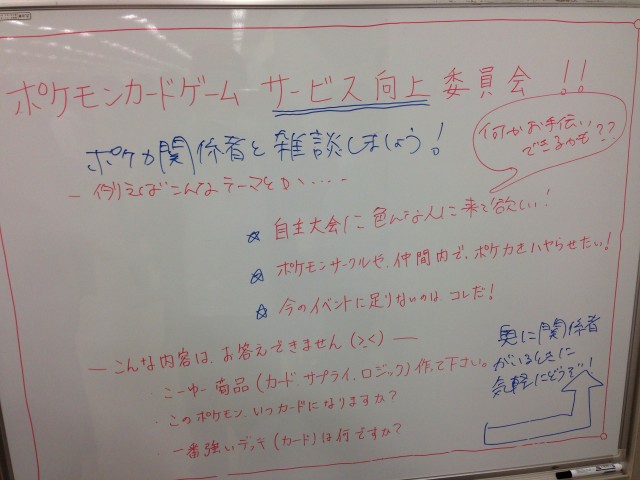 ポケモンカードゲーム サービス向上 委員会 !!
ポケカ関係者と雑談しましょう!
何かお手伝い
できるかも??
- 例えばこんなテーマとか・・・・-
☆ 自主大会に色んな人に来て欲しい!
☆ ポケモンサークルや、仲間内で、ポケカをハヤらせたい!
☆ 今のイベントに足りないのは、コレだ!
— こんな内容は、お答えできません (>_<) —
・こーゆー商品(カード、サプライ、ロジック)作って下さい。
・このポケモン、いつカードになりますか?
・一番強いデッキ(カード)は何ですか?
奥に関係者
がいるときに
気軽にどうぞ!